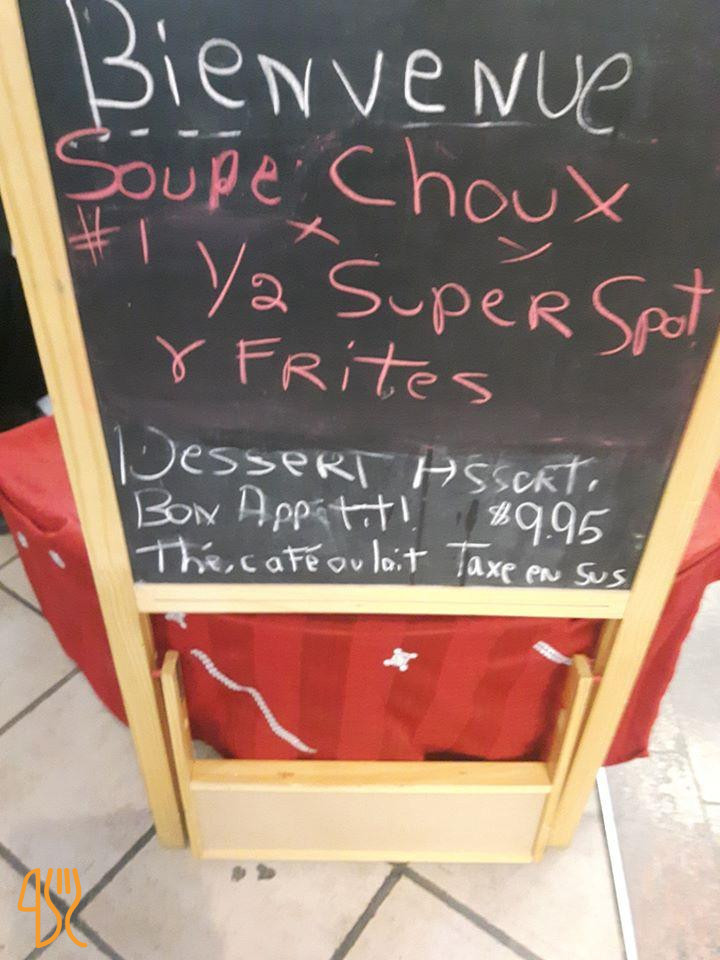 Bienvenue
Soupe: Choux
#1 1/2 Super Spot
& Frites
Dessert Assort.
Bon Appétit! $9.95
Thé, café ou lait Taxe en sus